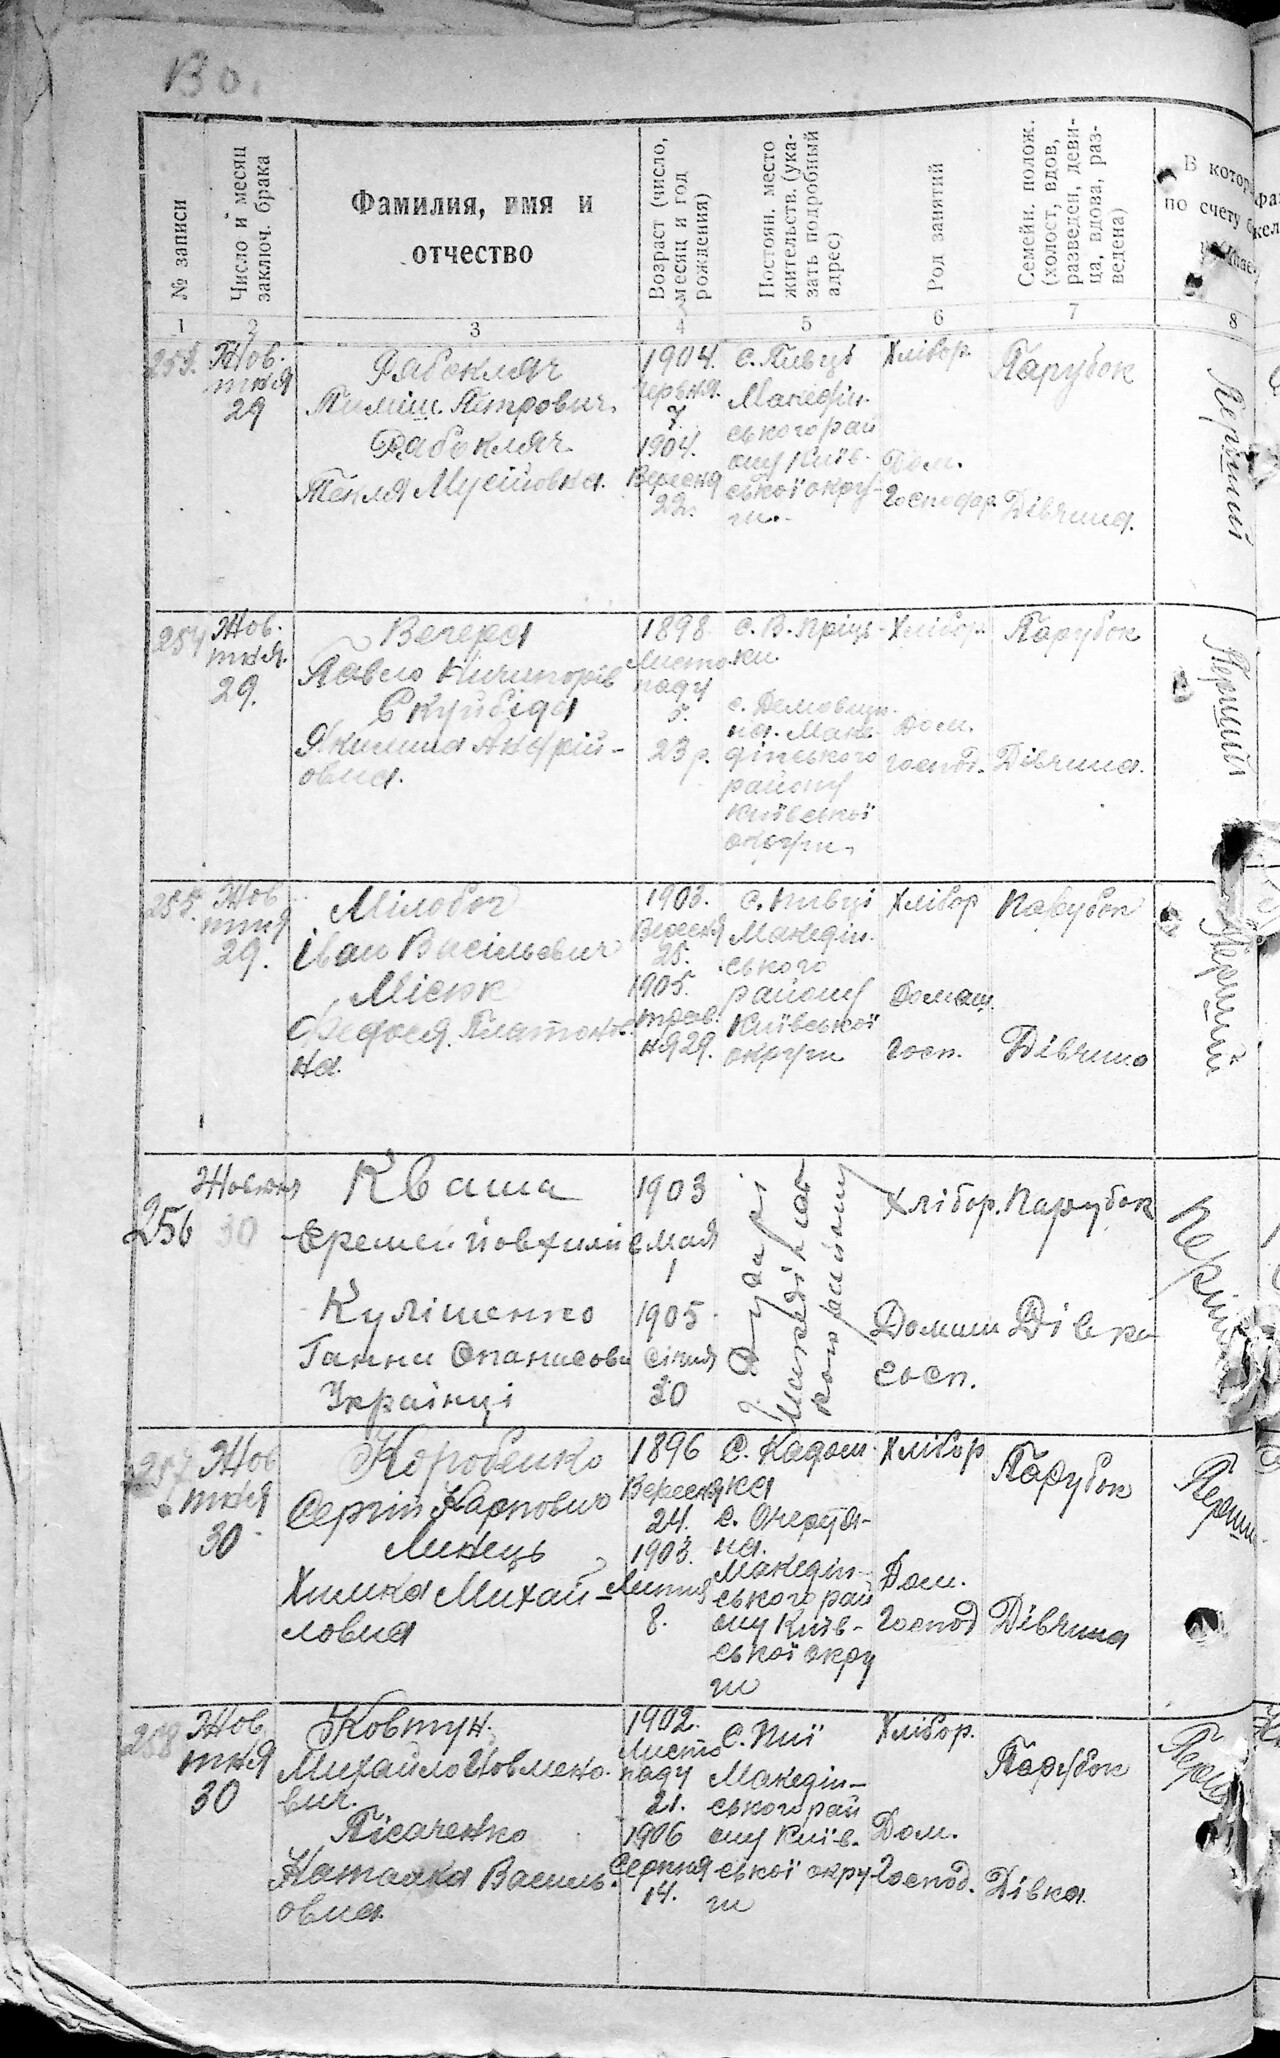 № записи
Число и месяц заключ. брака
Фамилия, имя и
отчество
Возраст (число, месяц и год рождения)
Постоян. место жительств. (указать подробный адрес)
Род занятий
Семейн. полож. (холост, вдов, разведен, девица, вдова, разведена)
В котор
по счету
1
2
3
4
5
6
7
8
Жов-
тня
29
Рябокляч
Тиміш Петрович.
Рябокляч.
Текля Мусіївна.
1904.
червня.
7.
1904.
Вересня
22.
с. Пивці
Македін-
ського рай
ону Київ-
ської окру-
ги.
Хлібор.
Дом.
Господар.
Парубок
Дівчина.
Перший
254
Жов-
тня.
29.
Вечеря
Павло Ничипорів
Скуйбіда
Якилина Андрій-
овна.
1898.
Листо-
паду
5.
23 р.
с. В. Пріць-
ки.
с. Демовщи-
на. Маке-
дінського
району
Київської
округи.
Хлібор.
Дом.
господ.
Парубок
Дівчина.
Перший
255.
Жов
тня
29.
Мілобог
Іван Васільович
Місюк
Федося Платонов-
на.
1903.
Вересня
25.
1905.
трав.
ня 29.
с. Пивці
Македін-
ського
району
Київської
округи
Хлібор
Домаш.
Госп.
Парубок
Дівчина
Перший
256
Жовтня
30
Кваша
Єремей Йовхимів
Кулішенко
Ганна Опанасова
Українці
1903
мая
1
1905
січня
30
Македінсь
кого району
Хлібор.
Домаш
госп.
Парубок
Дівка
Перший
257
Жов
тня
30
Коробенко
Сергій Карпович
Линець
Химка Михай-
ловна
1896
Вересня
24.
1903.
Липня
8.
с. Кадом-
ка
с. Очеретя-
на.
Македін-
ського рай
ону Київ-
ської окру
ги
Хлібор
Дом.
Господ
Парубок
Дівчина
Перши
258
Жов
тня
30
Ковтун.
Михайло Йовмено-
вич.
Пісаченко
Наталка Василь-
овна.
1902.
Листо
паду
21.
1906
Серпня
14.
с. Пиї
Македін-
ського рай
ону Київ-
ської окру-
ги
Хлібор.
Дом.
Господ.
Парубок
Дівка
Перш